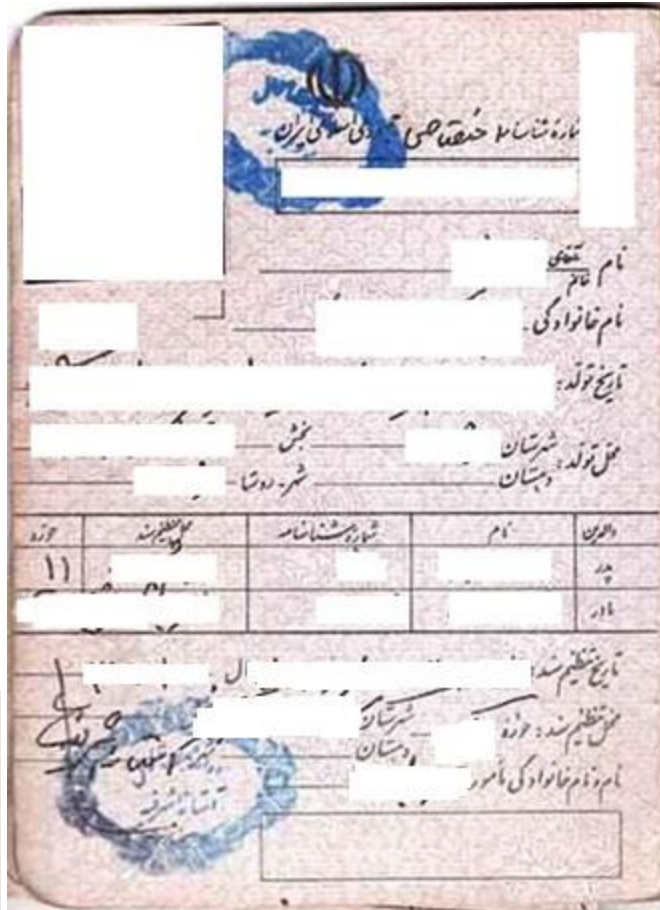 شماره شناسنامه اختصاصی جمهوری اسلامی ایران
نام آقای
خانم
نام خانوادگی
تاریخ تولد:
محل تولد: شهرستان بخش
دهستان شهر - روستا
والدین نام شماره شناسنامه محل تنظیم سند حوزه
پدر ۱۱
مادر
تاریخ تنظیم سند:
محل تنظیم سند: حوزه شهرستان
دهستان
نام و نام خانوادگی مأمور
آستانه اشرفیه